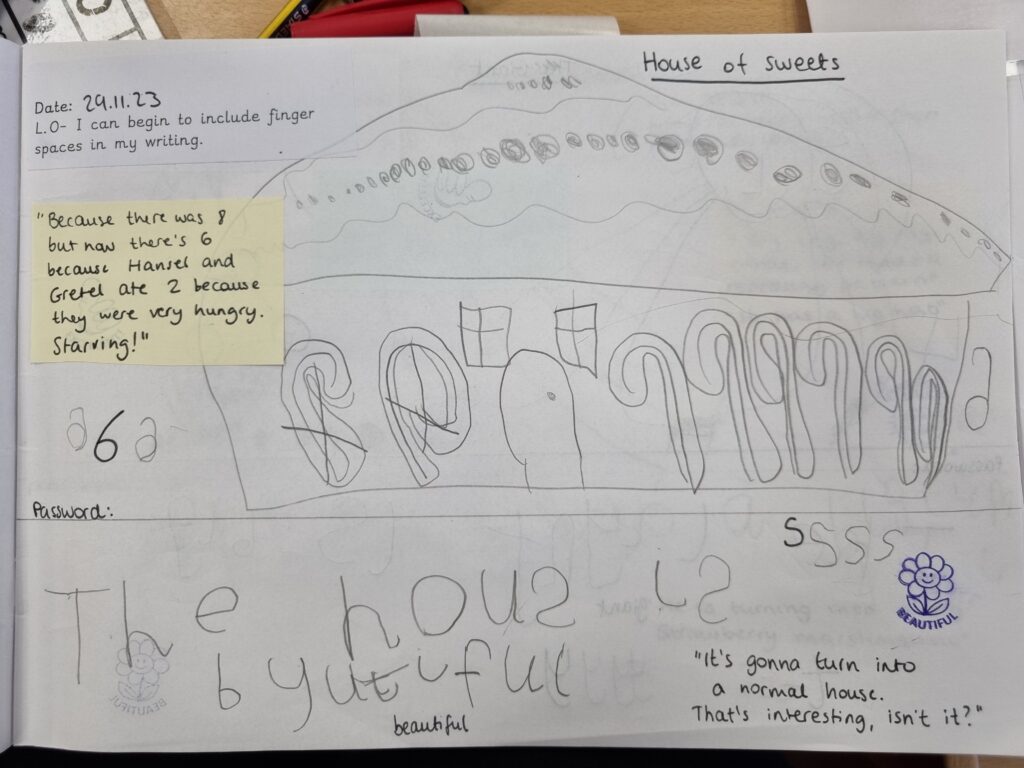 House of sweets
Date: 29.11.23
L.O- I can begin to include finger
spaces in my writing.
"Because there was 8
but now there's 6
because Hansel and
Gretel ate 2 because
they were very hungry.
Starving!"
6 6 6
6
Password:
s s s s
The hous is
byutiful
beautiful
BEAUTIFUL
"It's gonna turn into
a normal house.
That's interesting, isn't it?"